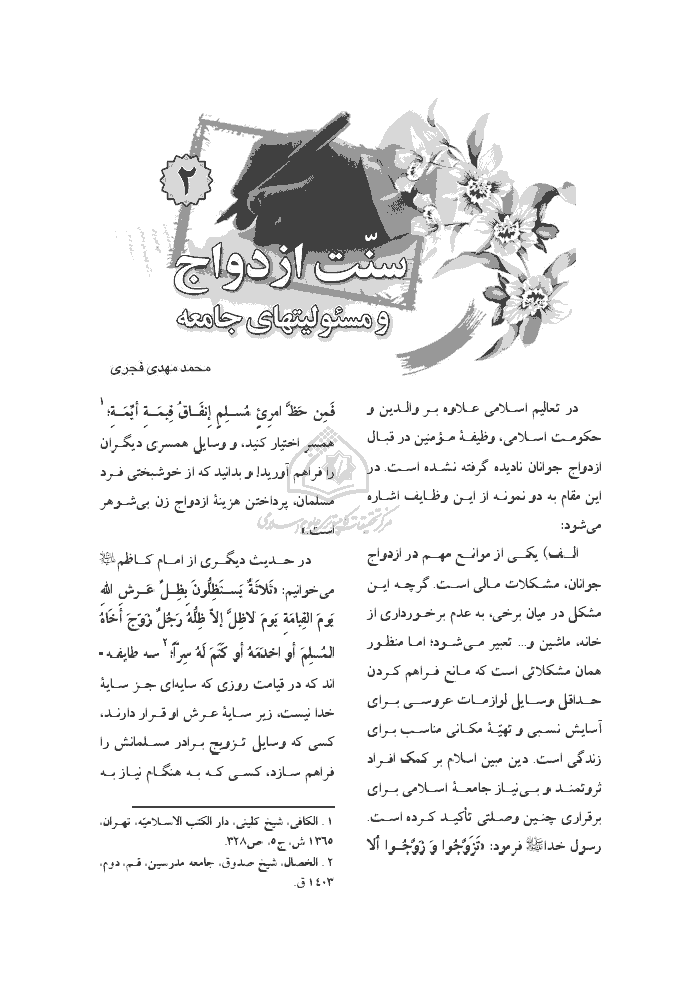 ۲
سنّت ازدواج
و مسئولیتهای جامعه
محمد مهدی فجری
در تعالیم اسلامی علاوه بر والدین و
حکومت اسلامی، وظیفهٔ مؤمنین در قبال
ازدواج جوانان نادیده گرفته نشده است. در
این مقام به دو نمونه از این وظایف اشاره
می‌شود:
الف) یکی از موانع مهم در ازدواج
جوانان، مشکلات مالی است. گرچه این
مشکل در میان برخی، به عدم برخورداری از
خانه، ماشین و... تعبیر می‌شود؛ اما منظور
همان مشکلاتی است که مانع فراهم کردن
حداقل وسایل لوازمات عروسی برای
آسایش نسبی و تهیّهٔ مکانی مناسب برای
زندگی است. دین مبین اسلام بر کمک افراد
ثروتمند و بی‌نیاز جامعهٔ اسلامی برای
برقراری چنین وصلتی تأکید کرده است.
رسول خداﷺ فرمود: «تَزَوَّجُوا وَ زَوِّجُوا ألا
فَمِن حَظَّ امرِئٍ مُسلِمٍ إنفَاقُ قِیمَةِ أیِّمَةٍ؛۱
همسر اختیار کنید، و وسایل همسری دیگران
را فراهم آورید! و بدانید که از خوشبختی فرد
مسلمان، پرداختن هزینهٔ ازدواج زن بی‌شوهر
است.»
در حدیث دیگری از امام کاظم
می‌خوانیم: «ثَلاثَةٌ یَستَظِلُّونَ بِظِلِّ عَرشِ اللهِ
یَومَ القِیامَةِ یَومَ لاظِلَّ إلاّ ظِلُّهُ رَجُلٌ زَوَّجَ أَخَاهُ
المُسلِمَ أو اخدَمَهُ أو کَتَمَ لَهُ سِرّاً؛۲ سه طایفه‌ -
اند که در قیامت روزی که سایه‌ای جز سایهٔ
خدا نیست، زیر سایهٔ عرش او قرار دارند،
کسی که وسایل تزویج برادر مسلمانش را
فراهم سازد، کسی که به هنگام نیاز به
۱ . الکافی، شیخ کلینی، دار الکتب الاسلامیّه، تهران،
۱۳۶۵ ش، ج۵، ص۳۲۸.
۲ . الخصال، شیخ صدوق، جامعه مدرسین، قم، دوم،
۱۴۰۳ ق.